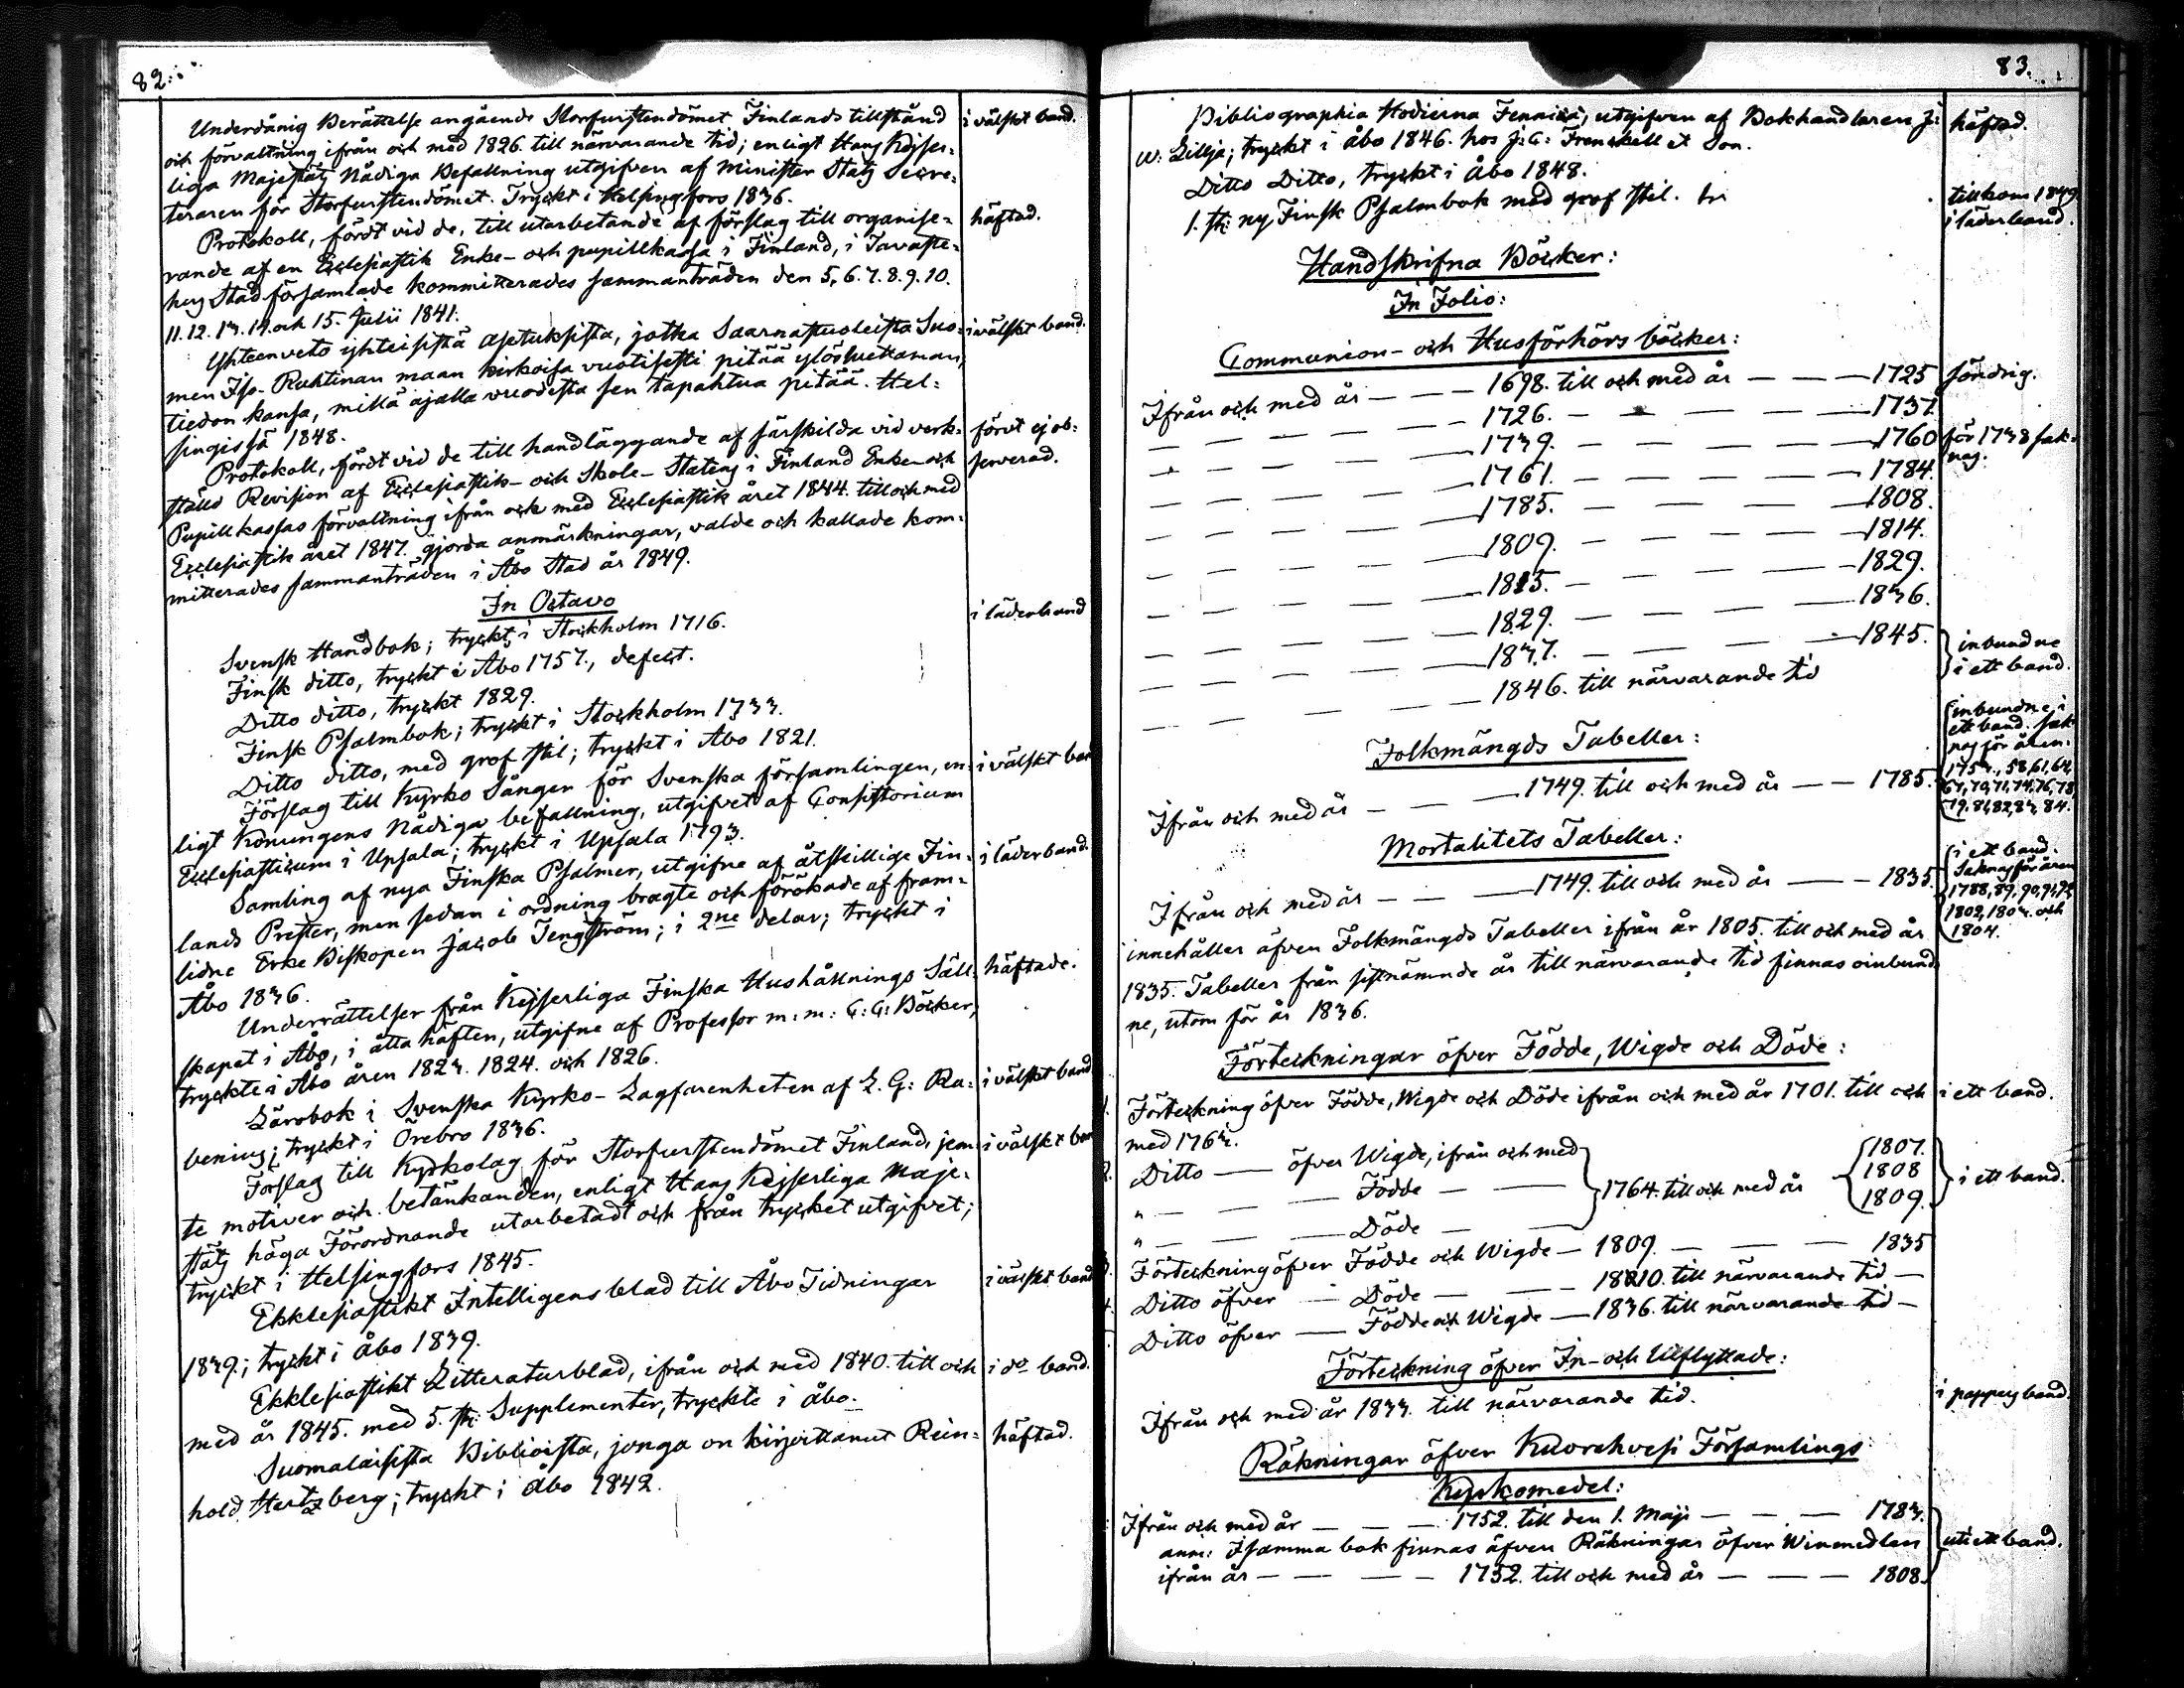 82.
Underdånig Berättelse angående Storfurstendömet Finlands tillstånd i välskt band.
och förvaltning ifrån och med 1826. till närvarande tid; enligt Hans Kejser-
liga Majestäts Nådiga Befallning utgifven af Minister Stats Secre-
teraren för Storfurstendömet. Tryckt i Helsingfors 1836.
Protokoll, fördt vid de, till utarbetande af förslag till organise- häftad.
rande af en Ecclesiastik Enke- och pupillkassa i Finland, i Tavaste-
hus Stad församlade kommitterades sammanträden den 5. 6. 7. 8. 9. 10.
11. 12. 13. 14. och 15. Julii 1841.
Yhteenveto yhteisistä asetuksista, jotka Saarnastuoleista Suo- i välskt band.
men Iso-Ruhtinan maan kirkoisa vuotisesti pitää ylösluettaman,
tiedon kansa, millä ajalla vuodesta sen tapahtua pitää. Hel-
singissä 1848.
Protokoll, fördt vid de till handläggande af särskilda vid verk- förut ej ob-
ställd Revision af Ecclesiastik- och Skole-Statens i Finland Enke- och serverad.
Pupillkassas förvaltning ifrån och med Ecclesiastik året 1844. till och med
Ecclesiastik året 1847. gjorda anmärkningar, valde och kallade kom-
mitterades sammanträden i Åbo Stad år 1849.
In Octavo
Svensk Handbok; tryckt i Stockholm 1716. i läderband
Finsk ditto, tryckt i Åbo 1757., defect.
Ditto ditto, tryckt 1829.
Finsk Psalmbok; tryckt i Stockholm 1733.
Ditto ditto, med grof stil; tryckt i Åbo 1821.
Förslag till Kyrko Sånger för Svenska församlingen, en- i välskt ban
ligt Konungens Nådiga befallning, utgifvet af Consistorium
Ecclesiasticum i Upsala; tryckt i Upsala 1793.
Samling af nya Finska Psalmer, utgifne af åtskillige Fin- i läderband.
lands Prester, men sedan i ordning bragte och förökade af fram-
lidne Erke Biskopen Jacob Tengström; i 2ne delar; tryckt i
Åbo 1836.
Underrättelser från Kejserliga Finska Hushållnings Säll- häftade.
skapet i Åbo, i åtta häften, utgifne af Professor m: m: C: C: Böcker,
tryckte i Åbo åren 1823. 1824. och 1826.
Lärobok i Svenska Kyrko-Lagfarenheten af L. G: Ra- i välskt band
benius; tryckt i Örebro 1836.
Förslag till Kyrkolag för Storfurstendömet Finland, jem- i välskt ban
te motiver och betänkanden, enligt Hans Kejserliga Maje-
stäts höga Förordnande utarbetadt och från trycket utgifvet;
tryckt i Helsingfors 1845.
Ekklesiastikt Intelligensblad till Åbo Tidningar i välskt band
1839.; tryckt i Åbo 1839.
Ekklesiastikt Litteraturblad, ifrån och med 1840. till och i do band.
med år 1845. med 5. st: Supplementer, tryckte i Åbo.
Suomalaisista Biblioista, jonga on kirjoittanut Rein- häftad.
hold Hertzberg; tryckt i Åbo 1842.
83.
Bibliographia Hodierna Fennica, utgifven af Bokhandlaren J: häftad.
W: Lillja; tryckt i Åbo 1846. hos J: C: Frenckell et Son.
Ditto Ditto, tryckt i Åbo 1848.
1. st: ny Finsk Psalmbok med grof stil. tillkom 1849
i läderband.
Handskrifna Böcker:
In Folio:
Communion- och Husförhörs böcker:
Ifrån och med år — — — 1698. till och med år — — — 1725 söndrig.
— — — — — 1726. — — — — — 1737.
— — — — — 1739. — — — — — 1760 för 1738 sak-
nas.
— — — — — 1761. — — — — — 1784.
— — — — — 1785. — — — — — 1808.
— — — — — 1809. — — — — — 1814.
— — — — — 1815. — — — — — 1829.
— — — — — 1829. — — — — — 1836.
— — — — — 1837. — — — — — 1845. inbundne
i ett band.
— — — — — 1846. till närvarande tid
Folkmängds Tabeller:
Ifrån och med år — — — 1749. till och med år — — 1785.
inbundne i
ett band. sak-
nas för åren.
1753., 58, 61, 64,
67, 70, 71, 74, 76, 78,
79. 81, 82, 83, 84.
Mortalitets Tabeller:
Ifrån och med år — — — 1749. till och med år — — 1835.
i ett band.
Saknas för åren
1788, 89, 90, 91, 92
1802, 1803. och
1804.
innehåller äfven Folkmängds Tabeller ifrån år 1805. till och med år
1835. Tabeller från sistnämnde år till närvarande tid finnas oinbund-
ne, utom för år 1836.
Förteckningar öfver Födde, Wigde och Döde:
1. Förteckning öfver Födde, Wigde och Döde ifrån och med år 1701. till och i ett band.
med 1763.
2. Ditto — öfver Wigde, ifrån och med 1807.
" — — — Födde — — 1764. till och med år 1808 i ett band.
" — — — Döde — — 1809.
3. Förteckning öfver Födde och Wigde — 1809. — — — 1835
4. Ditto öfver — Döde — — — 1810. till närvarande tid —
Ditto öfver — Födde och Wigde — 1836. till närvarande tid —
Förteckning öfver In- och Utflyttade:
Ifrån och med år 1833. till närvarande tid. i pappers band.
Räkningar öfver Kuorehvesi Församlings
Kyrkomedel:
Ifrån och med år — — — 1752. till den 1. Maji — — — 1783.
anm: I samma bok finnas äfven Räkningar öfver Winmedlen uti ett band.
ifrån år — — — — 1752. till och med år — — — 1808.